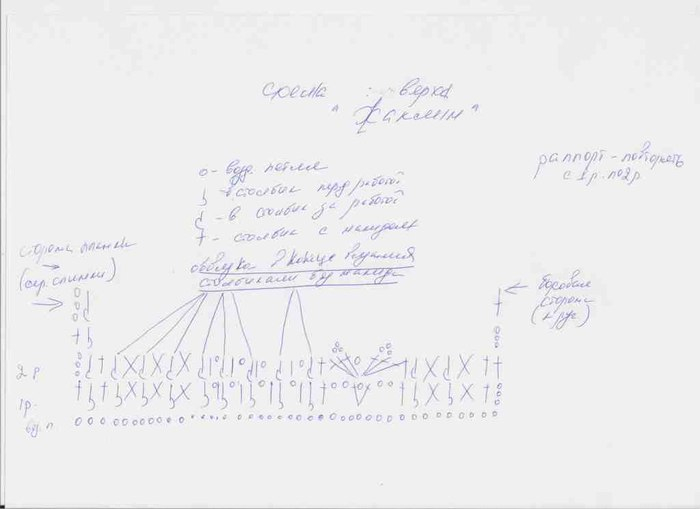 схема верха
"Жасмин"
о - возд. петля
столбик перед работой
- в столбик за работой
† - столбик с накидом
обвязка в конце вязания
столбиками без накида
раппорт - повторять
с 1р. по 2р
сторона планки
(сер. спинки)
боковая
сторона
(к рус)
2 р
1р.
в.п.